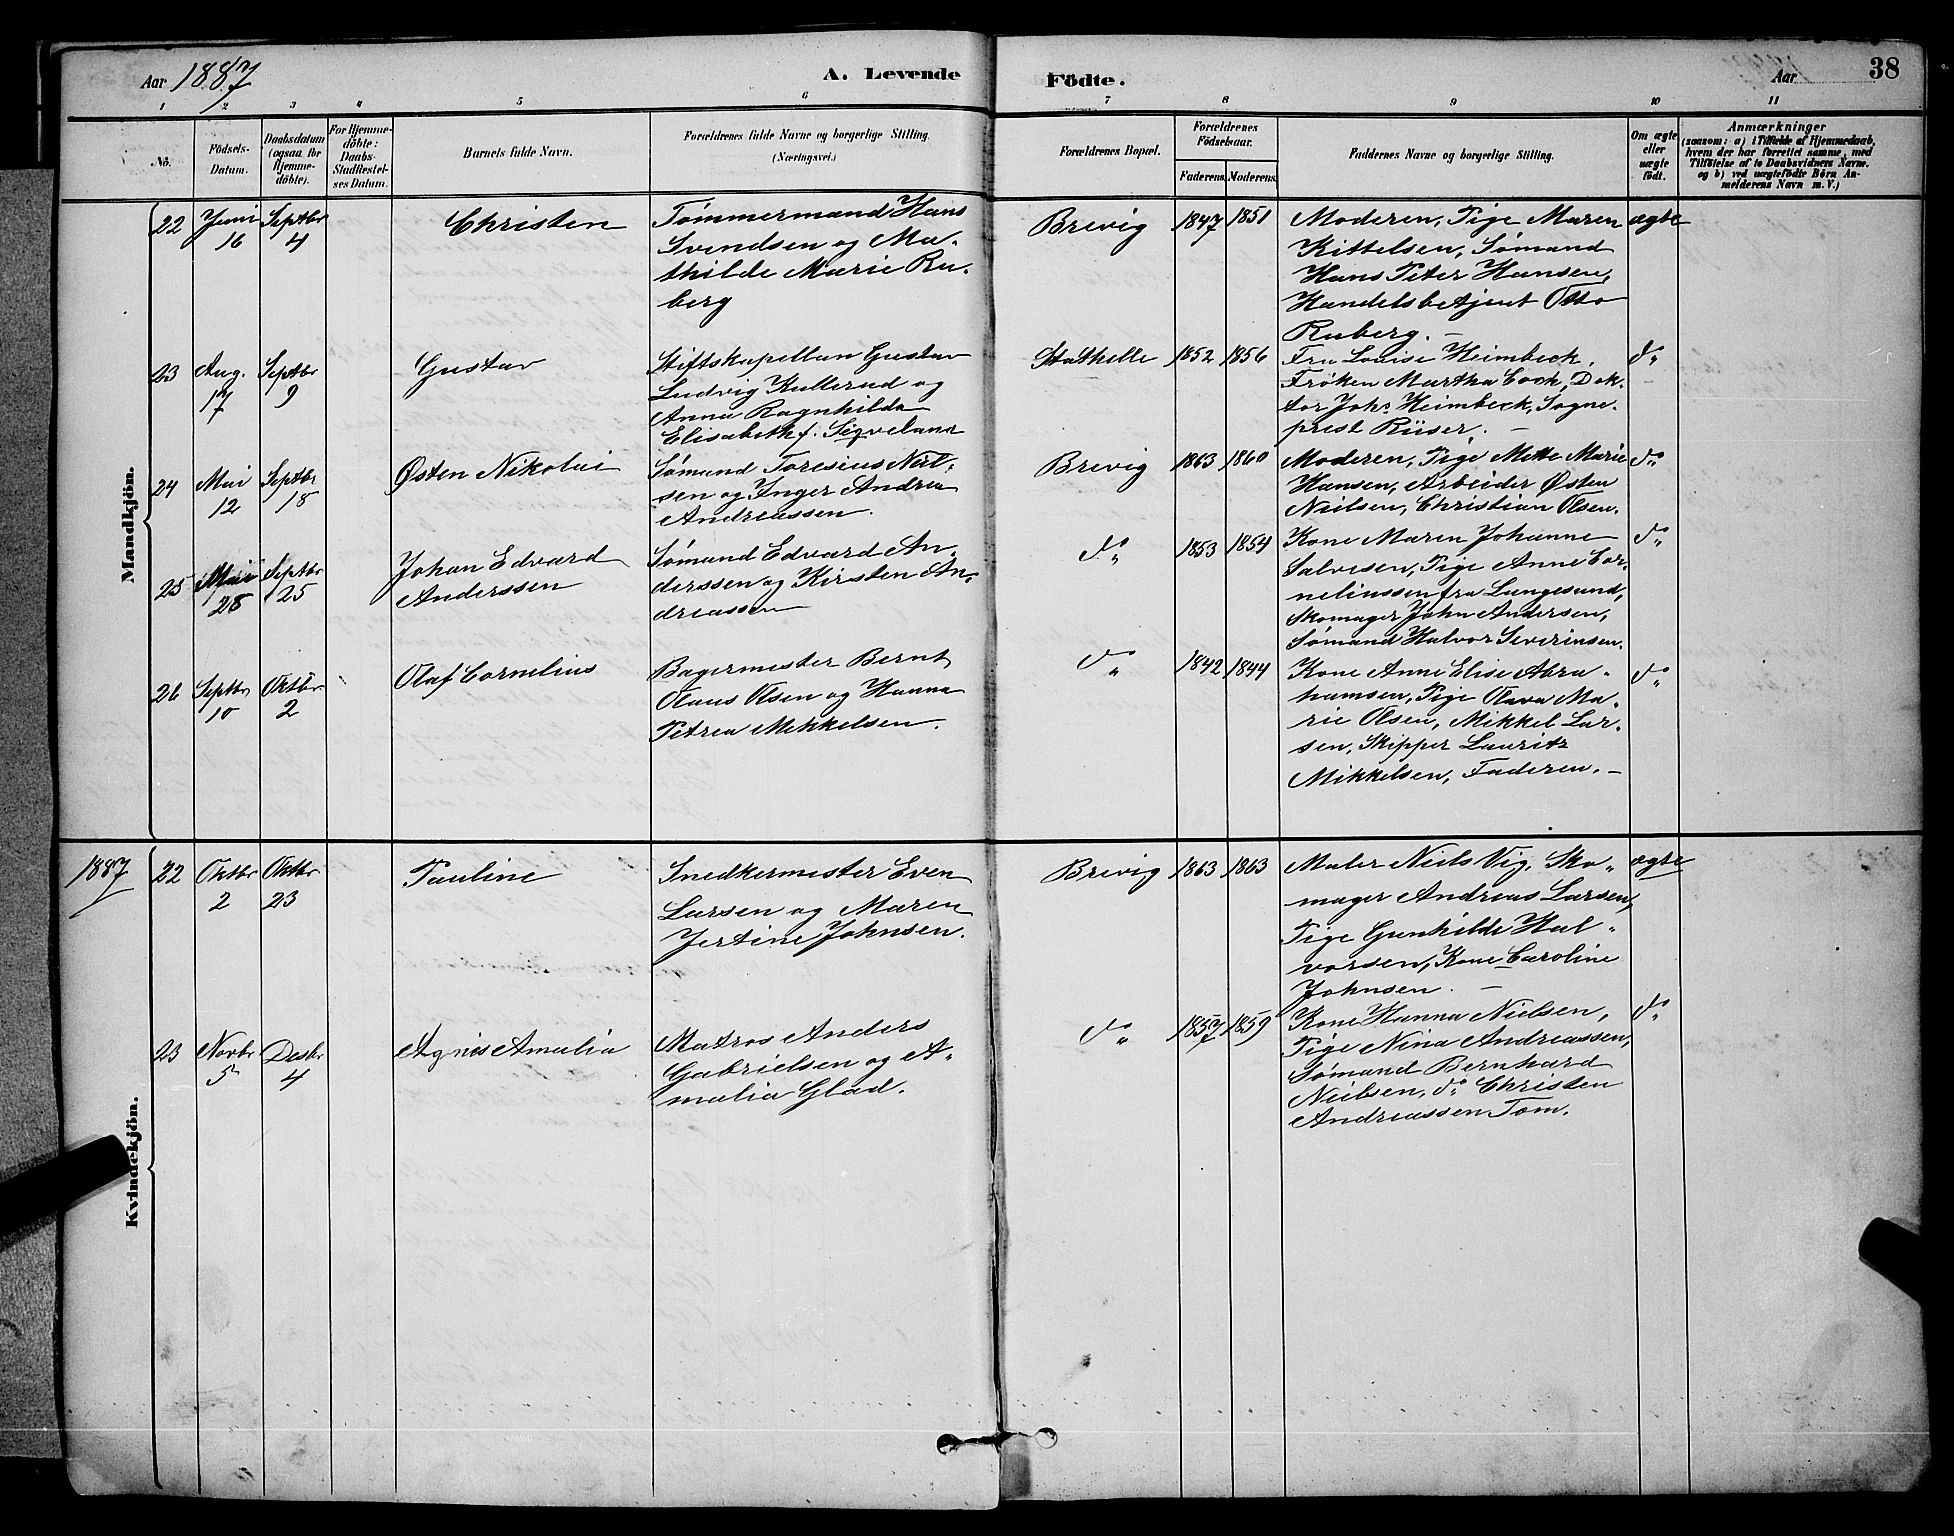 Aar 1887
A. Levende
Födte.
Aar
38
1 2 3 4 5 6 7 8 9 10 11
No.
Födsels-
Datum.
Daabsdatum
(ogsaa for
Hjemme-
döbte).
For Hjemme-
döbte:
Daabs-
Stadfæstel-
ses Datum.
Barnets fulde Navn.
Forældrenes fulde Navne og borgerlige Stilling.
(Næringsvei.)
Forældrenes Bopæl.
Forældrenes
Födselsaar.
Faderens.
Moderens.
Faddernes Navne og borgerlige Stilling.
Om ægte
eller
uægte
födt.
Anmærkninger
(saasom: a) i Tilfælde af Hjemmedaab,
hvem der har forrettet samme, med
Tilföielse af to Daabsvidners Navne.
og b) ved uægtefödte Börn An-
melderens Navn m. V.)
Mandkjön.
22
Juni
16
Septbr
4
Christen
Tømmermand Hans
Svendsen og Ma-
thilde Marie Ru-
berg
Brevig
1847
1851
Moderen, Pige Maren
Kittelsen, Sømand
Hans Peter Hansen,
Handelsbetjent Otto
Ruberg. —
ægte
23
Aug.
17
Septbr
9
Gustav
Stiftskapellan Gustav
Ludvig Kullerud og
Anna Ragnhilda
Elisabeth f. Sigveland
Stathelle
1852
1856
Fru Louise Heimbeck,
Frøken Martha Cock, Dok-
tor Johs Heimbeck, Sogne-
prest Riiser. —
do
24
Mai
12
Septbr
18
Østen Nikolai
Sømand Toresius Niel-
sen og Inger Andrea
Andreassen.
Brevig
1863
1860
Moderen, Pige Mette Marie
Hansen, Arbeider Østen
Nielsen, Christian Olsen.
do
25
Mai
28
Septbr
25
Johan Edvard
Anderssen
Sømand Edvard An-
derssen og Kirsten An-
dreassen
do
1853
1854
Kone Maren Johanne
Salvesen, Pige Anne Cor-
neliussen fra Langesund,
Skomager John Andersen,
Sømand Halvor Severinsen.
do
26
Septbr
10
Oktbr
2
Olaf Cornelius
Bagermester Bernt
Olaus Olsen og Hanna
Petrea Mikkelsen.
do
1842
1844
Kone Anne Elise Abra-
hamsen, Pige Olava Ma-
rie Olsen, Mikkel Lar-
sen, Skipper Lauritz
Mikkelsen, Faderen. —
do
Kvindekjön.
1887
22
Oktbr
2
Oktbr
23
Pauline
Snedkermester Even
Larsen og Maren
Jertine Johnsen.
Brevig
1863
1863
Maler Niels Vig, Sko-
mager Andreas Larsen,
Pige Gunhilde Hal-
vorsen, Kone Caroline
Johnsen. —
ægte
23
Novbr
5
Desbr
4
Agnes Amalia
Matros Anders
Gabrielsen og A-
malia Glad.
do
1857
1859
Kone Hanna Nielsen,
Pige Nina Andreassen,
Sømand Bernhard
Nielsen, do Christen
Andreassen Tom.
do